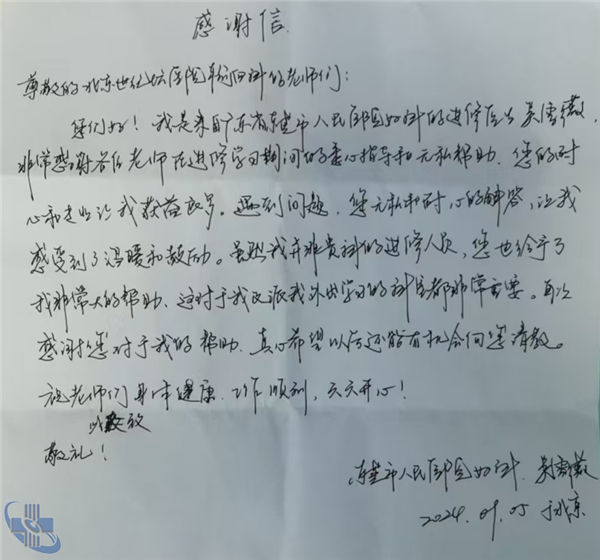 感谢信
尊敬的北京世纪坛医院的老师们：
您们好！我是来自广东省东莞市人民医院妇科的进修医生吴雪薇，
非常感谢各位老师在进修学习期间的悉心指导和无私帮助。您的耐
心和专业让我获益良多。遇到问题，您无私和耐心的解答，让我
感受到了温暖和鼓励。虽然我并非贵科的进修人员，您也给予了
我非常大的帮助，这对于我及派我外出学习的科室都非常重要。再次
感谢您对于我的帮助，真心希望以后还能有机会向您请教。
祝老师们身体健康，工作顺利，天天开心！
此致
敬礼！
东莞市人民医院妇科 吴雪薇
2024.09.05 于北京